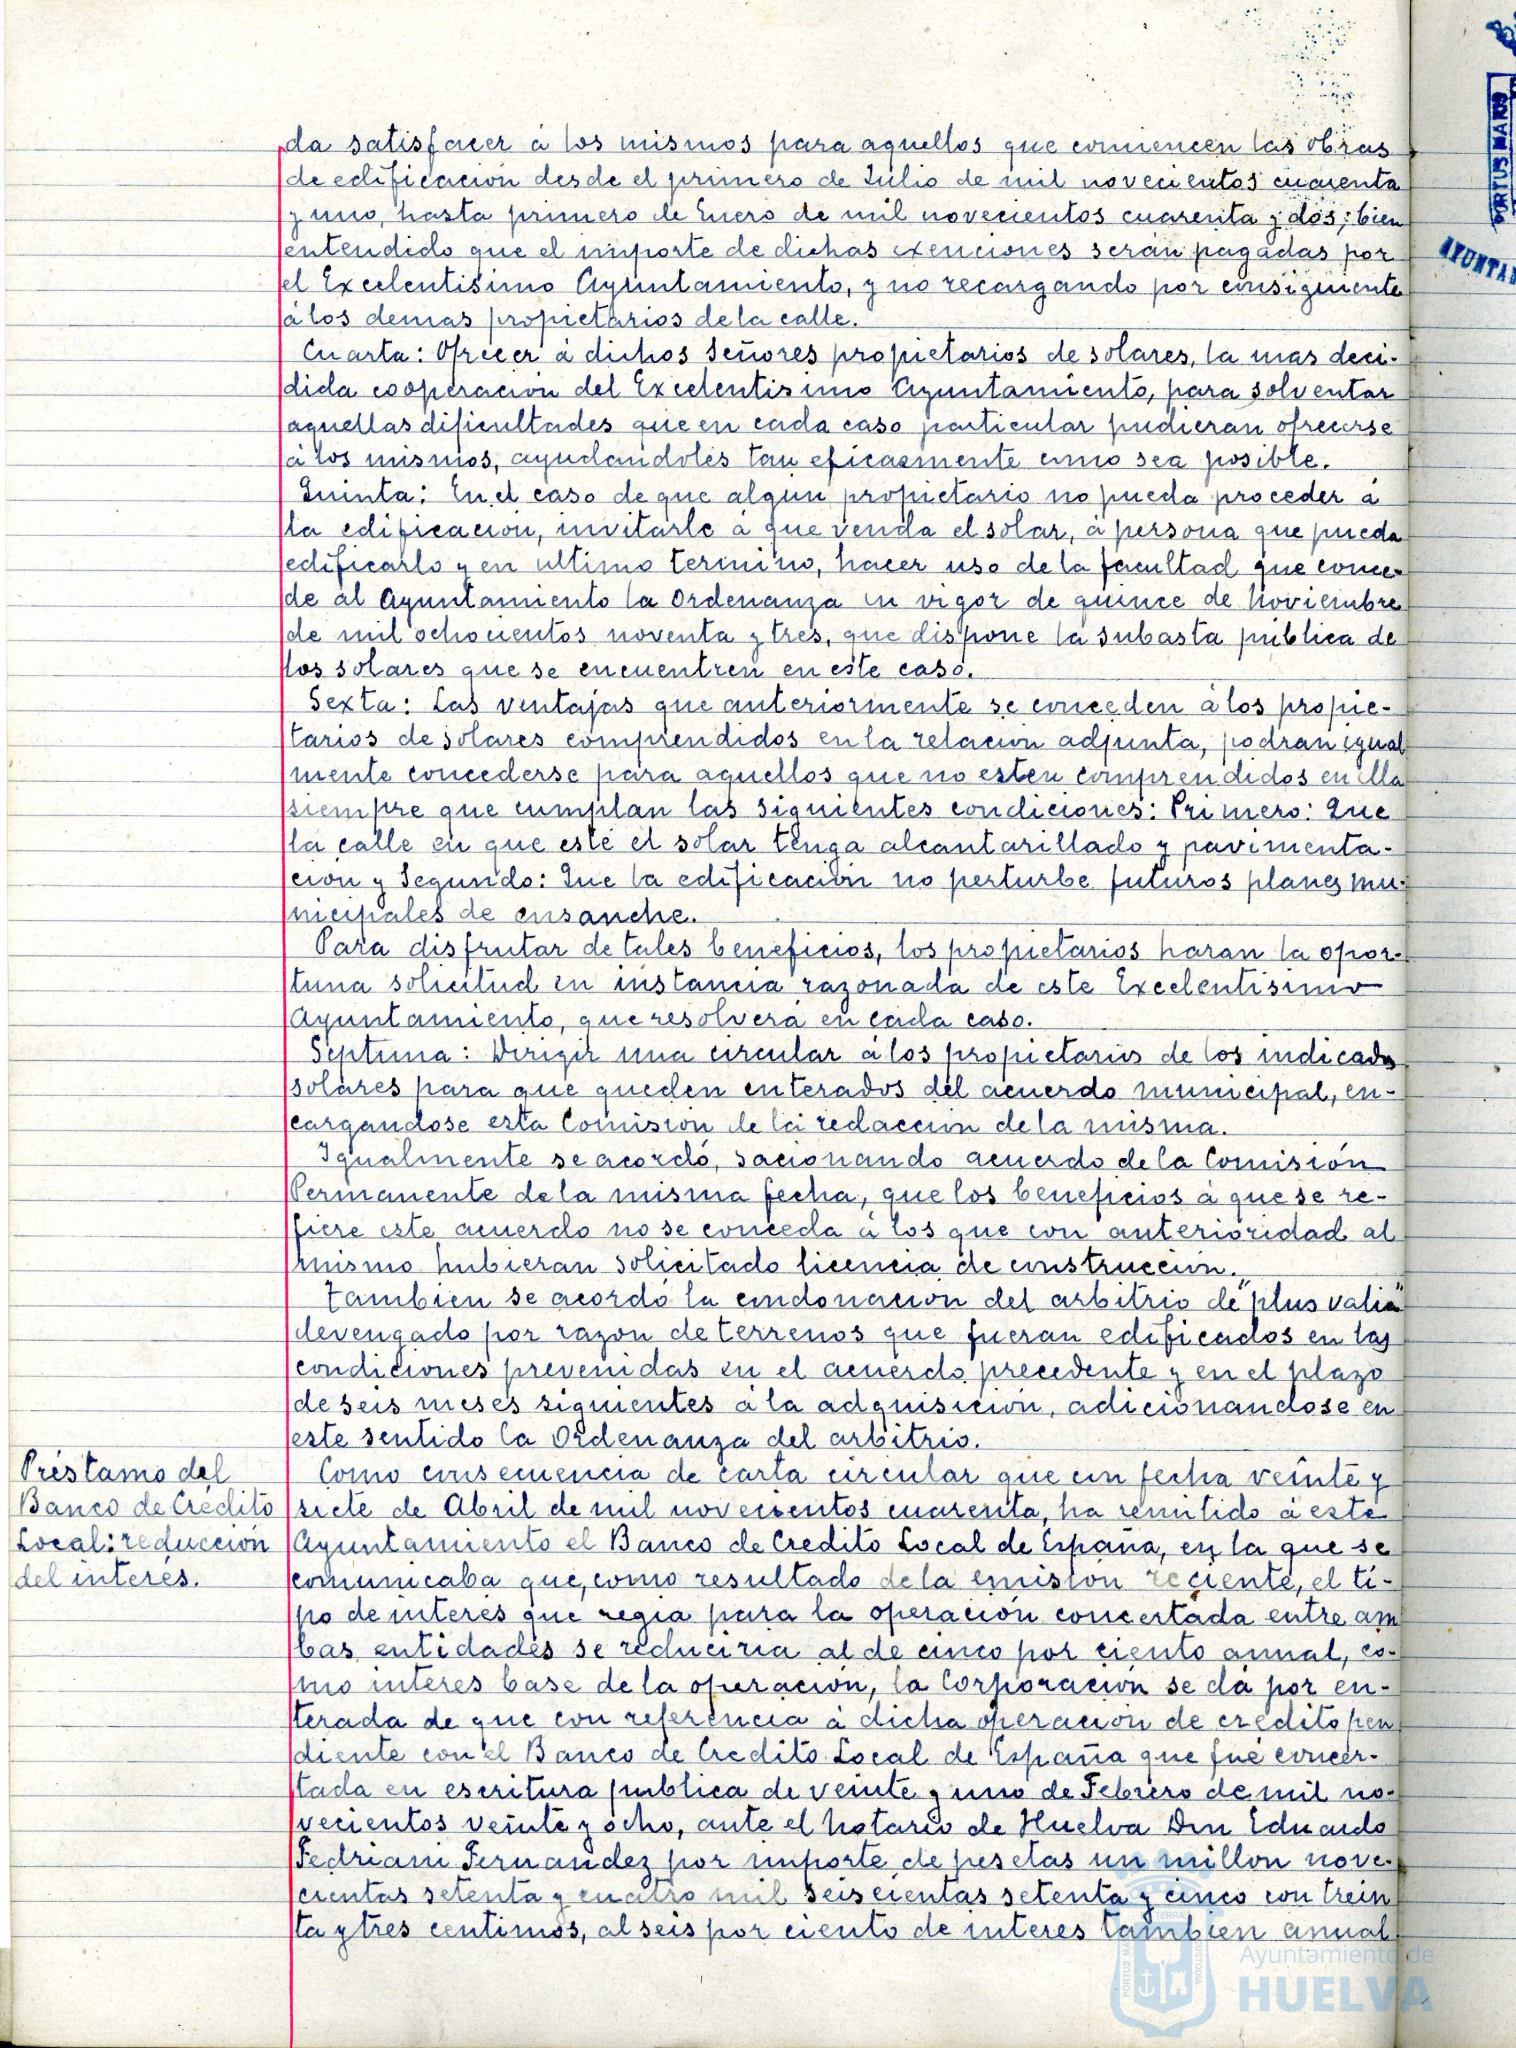 da satisfacer á los mismos para aquellos que comiencen las obras
de edificación desde el primero de Julio de mil novecientos cuarenta
y uno, hasta primero de Enero de mil novecientos cuarenta y dos; bien
entendido que el importe de dichas exenciones serán pagadas por
el Excelentisimo Ayuntamiento, y no recargando por consiguiente
á los demas propietarios de la calle.
Cuarta: Ofrecer á dichos Señores propietarios de solares, la mas deci-
dida cooperación del Excelentisimo Ayuntamiento, para solventar
aquellas dificultades que en cada caso particular pudieran ofrecerse
á los mismos, ayudandoles tan eficazmente como sea posible.
Quinta: En el caso de que algun propietario no pueda proceder á
la edificación, invitarle á que venda el solar, á persona que pueda
edificarlo y en ultimo termino, hacer uso de la facultad que conce-
de al Ayuntamiento la Ordenanza en vigor de quince de Noviembre
de mil ochocientos noventa y tres, que dispone la subasta pública de
los solares que se encuentren en este caso.
Sexta: Las ventajas que anteriormente se conceden á los propie-
tarios de solares comprendidos en la relación adjunta, podran igual
mente concederse para aquellos que no esten comprendidos en ella
siempre que cumplan las siguientes condiciones: Primero: Que
la calle en que esté el solar tenga alcantarillado y pavimenta-
cion y Segundo: Que la edificación no perturbe futuros planes mu-
nicipales de ensanche.
Para disfrutar de tales beneficios, los propietarios haran la opor-
tuna solicitud en instancia razonada de este Excelentisimo
Ayuntamiento, que resolverá en cada caso.
Septima: Dirigir una circular á los propietarios de los indicados
solares para que queden enterados del acuerdo municipal, en-
cargandose esta Comisión de la redaccion de la misma.
Igualmente se acordó, sacionando acuerdo de la Comisión
Permanente de la misma fecha, que los beneficios á que se re-
fiere este acuerdo no se conceda á los que con anterioridad al
mismo hubieran solicitado licencia de construccion.
Tambien se acordó la condonación del arbitrio de "plus valia"
devengado por razon de terrenos que fueran edificados en las
condiciones prevenidas en el acuerdo precedente y en el plazo
de seis meses siguientes á la adquisición, adicionandose en
este sentido la Ordenanza del arbitrio.
Préstamo del
Banco de Crédito
Local: reducción
del interés.
Como consecuencia de carta circular que con fecha veinte y
siete de Abril de mil novecientos cuarenta, ha remitido á este
Ayuntamiento el Banco de Credito Local de España, en la que se
comunicaba que, como resultado de la emisión reciente, el ti-
po de interes que regia para la operación concertada entre am
bas entidades se reduciria al de cinco por ciento annal, co-
mo interes base de la operación, la Corporación se dá por en-
terada de que con referencia á dicha operación de credito pen
diente con el Banco de Credito Local de España que fué concer-
tada en escritura publica de veinte y uno de Febrero de mil no-
vecientos veinte y ocho, ante el Notario de Huelva Don Eduardo
Fedriani Fernandez por importe de pesetas un millon nove-
cientas setenta y cuatro mil seiscientas setenta y cinco con trein
ta y tres centimos, al seis por ciento de interes tambien anual
PORTUS MARIS
AYUNTAM
Ayuntamiento de
HUELVA